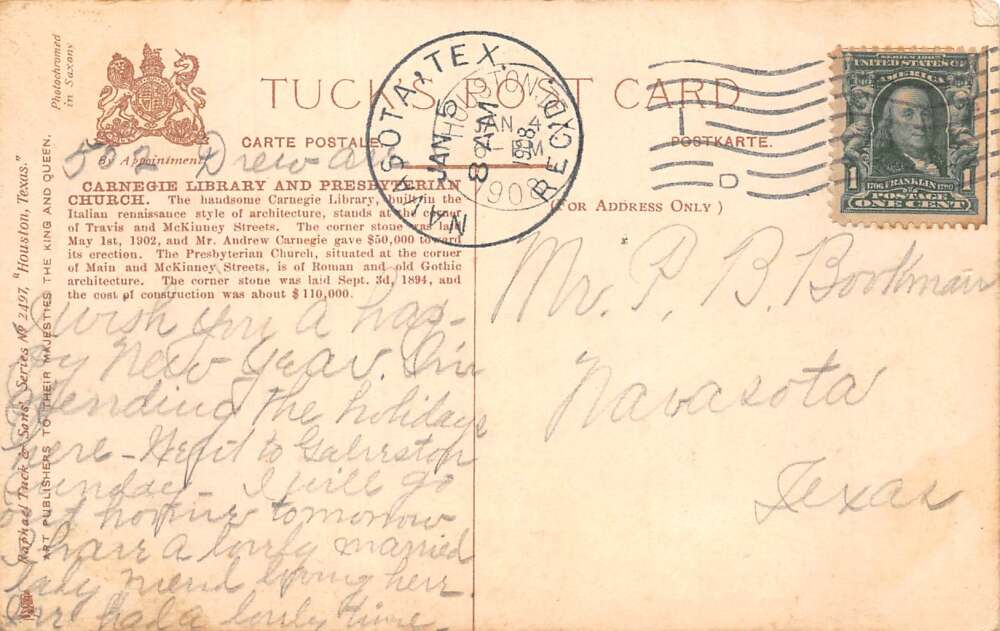 Photochromed
in Saxony
Raphael Tuck & Sons' Series Nº 2497, "Houston, Texas."
ART PUBLISHERS TO THEIR MAJESTIES THE KING AND QUEEN.
By Appointment
TUCK'S POST CARD
CARTE POSTALE
POSTKARTE.
(FOR ADDRESS ONLY)
NAVASOTA, TEX. REC'D.
JAN 5
8 AM
1908
HOUSTON
JAN 4
1908
SERIES 1902
UNITED STATES OF
AMERICA
1 1706 FRANKLIN 1790 1
POSTAGE
ONE CENT
502 Drew av
CARNEGIE LIBRARY AND PRESBYTERIAN
CHURCH. The handsome Carnegie Library, built in the
Italian renaissance style of architecture, stands at the corner
of Travis and McKinney Streets. The corner stone was laid
May 1st, 1902, and Mr. Andrew Carnegie gave $50,000 toward
its erection. The Presbyterian Church, situated at the corner
of Main and McKinney Streets, is of Roman and old Gothic
architecture. The corner stone was laid Sept. 3d, 1894, and
the cost of construction was about $110,000.
I wish you a hap-
py New Year. I'm
spending the holidays
here - Went to Galveston
Sunday - I will go
out home tomorrow
I have a lovely married
lady friend living here
Have had a lovely time.
Mr. P. B. Bookman
Navasota
Texas